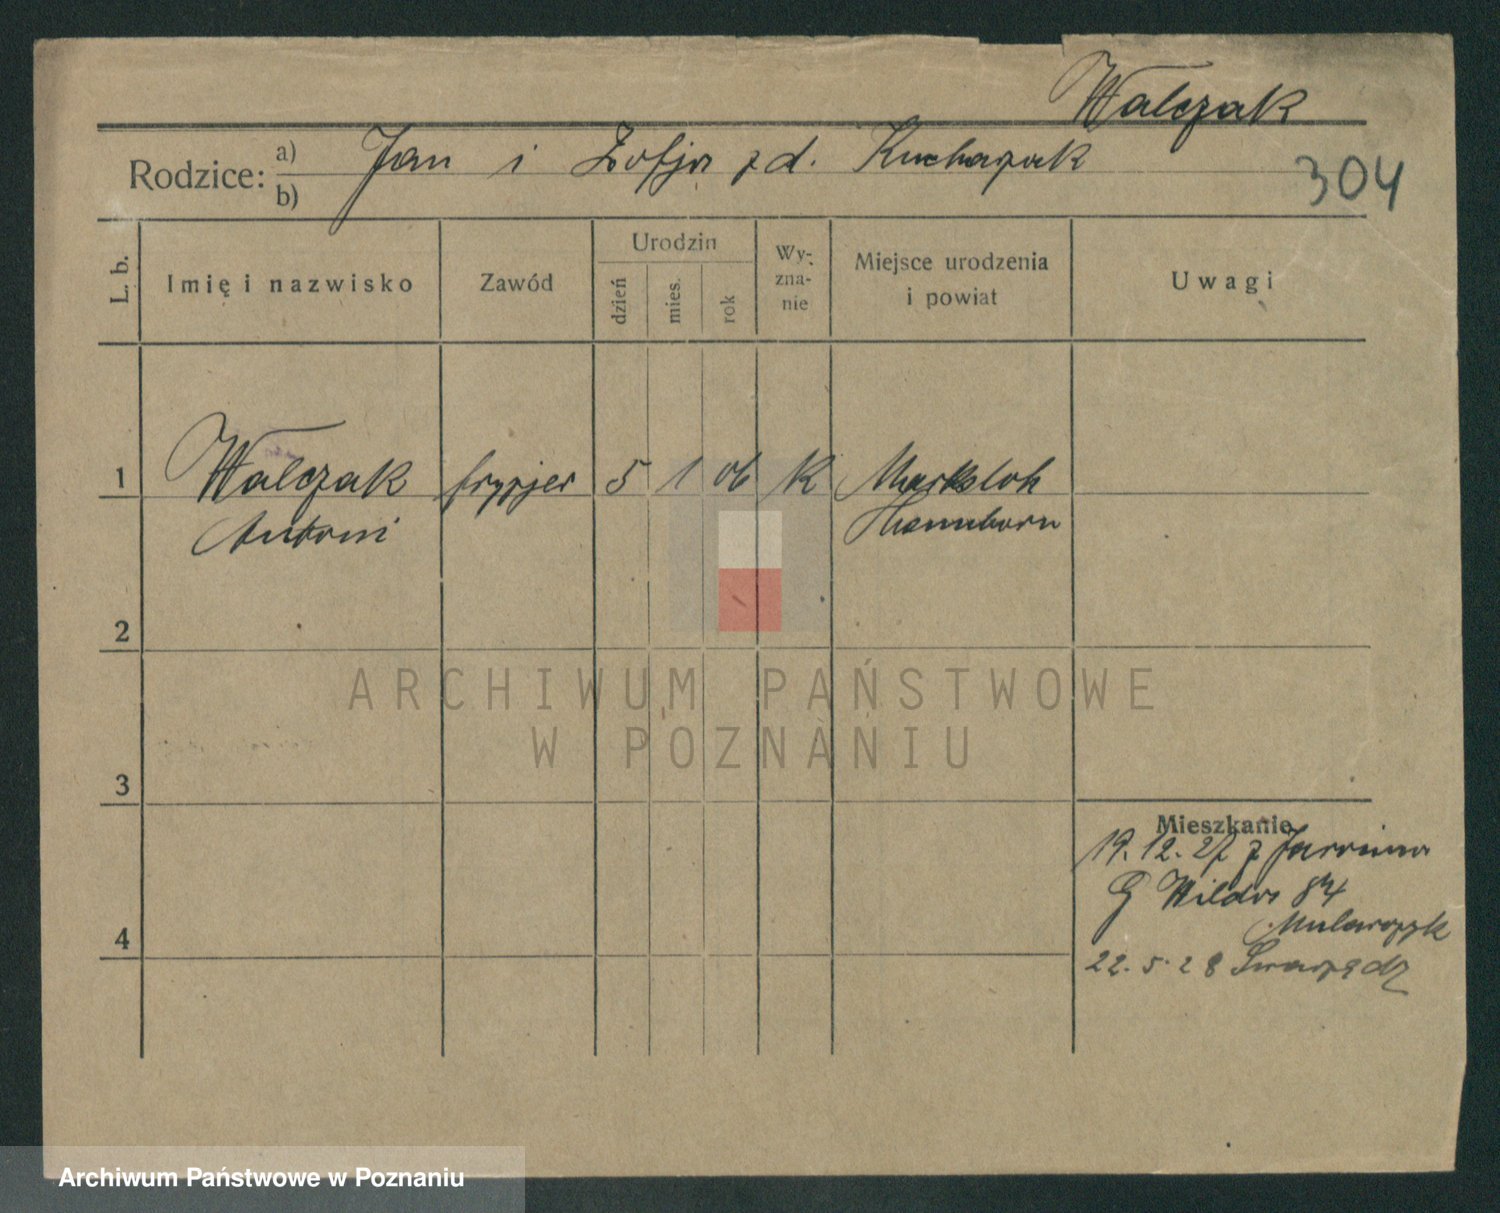 Walczak
Rodzice: a) b) Jan i Zofja zd. Kucharzak
304
L. b.
Imię i nazwisko
Zawód
Urodzin
dzień
mies.
rok
Wy-
zna-
nie
Miejsce urodzenia
i powiat
Uwagi
1 Walczak fryzjer 5 1 06 K Marksloh
Antoni Hamborn
2
3
4
Mieszkanie
19.12.27 z Jarocina
G Wilda 84
Mularczyk
22.5.28 Swarzędz
ARCHIWUM PAŃSTWOWE
W POZNANIU
Archiwum Państwowe w Poznaniu